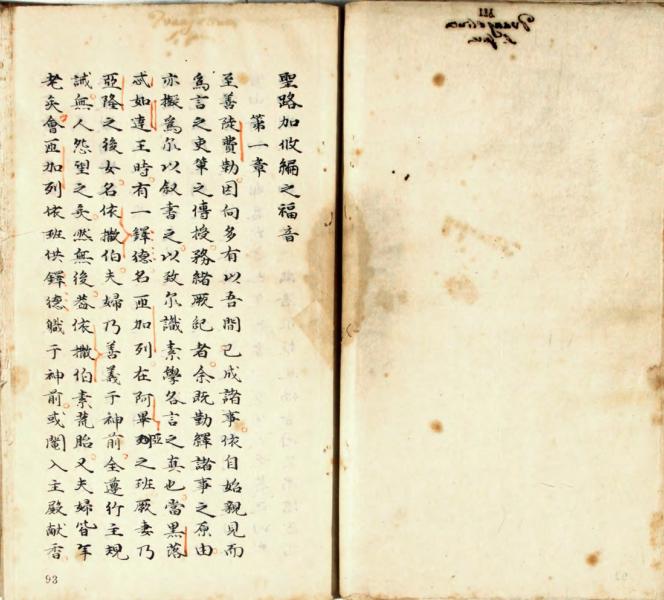 聖路加攸編之福音
第一章
至善陡費勒因向多有以吾間已成諸事依自始親見而
為言之吏筆之傳授務緒厥紀者余既勤繹諸事之原由
亦擬為尔以敘書之以致尔識素學各言之真也當黑落
忒如達王時有一鐸德名匝加列在阿畢亞之班厥妻乃
亞隆之後女名依撒伯夫婦乃善義于神前全遵行主規
誡無人怨望之矣然無後葢依撒伯素荒胎又夫婦皆年
老矣會匝加列依班供鐸德職于神前或鬮入主殿献香
93